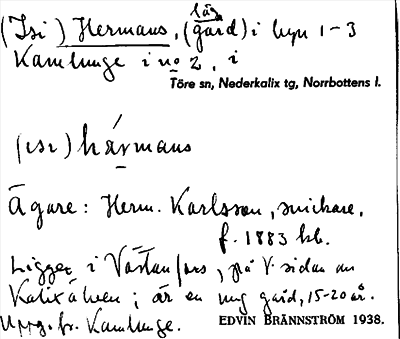 låg
(Isi) Hermans, (gård) i byn 1-3
Kamlunge i no 2, i
Töre sn, Nederkalix tg, Norrbottens l.
(ısı) härmans
Ägare: Herm. Karlsson, snickare,
f. 1883
Ligger i , på V. sidan av
Kalixälven; är en ung gård, 15-20 år.
Uppg. fr. Kamlunge.
EDVIN BRÄNNSTRÖM 1938.